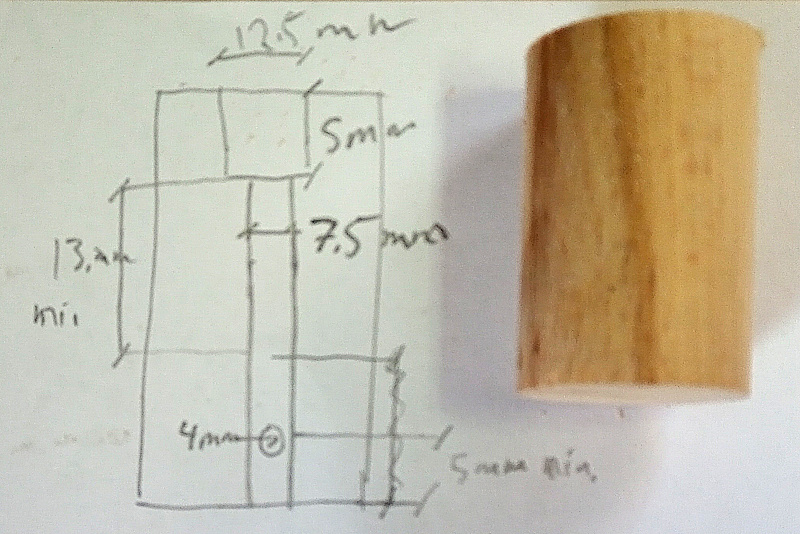 12.5 mm
5mm
7.5 mm
13.mm
min
4mm
5mm min.